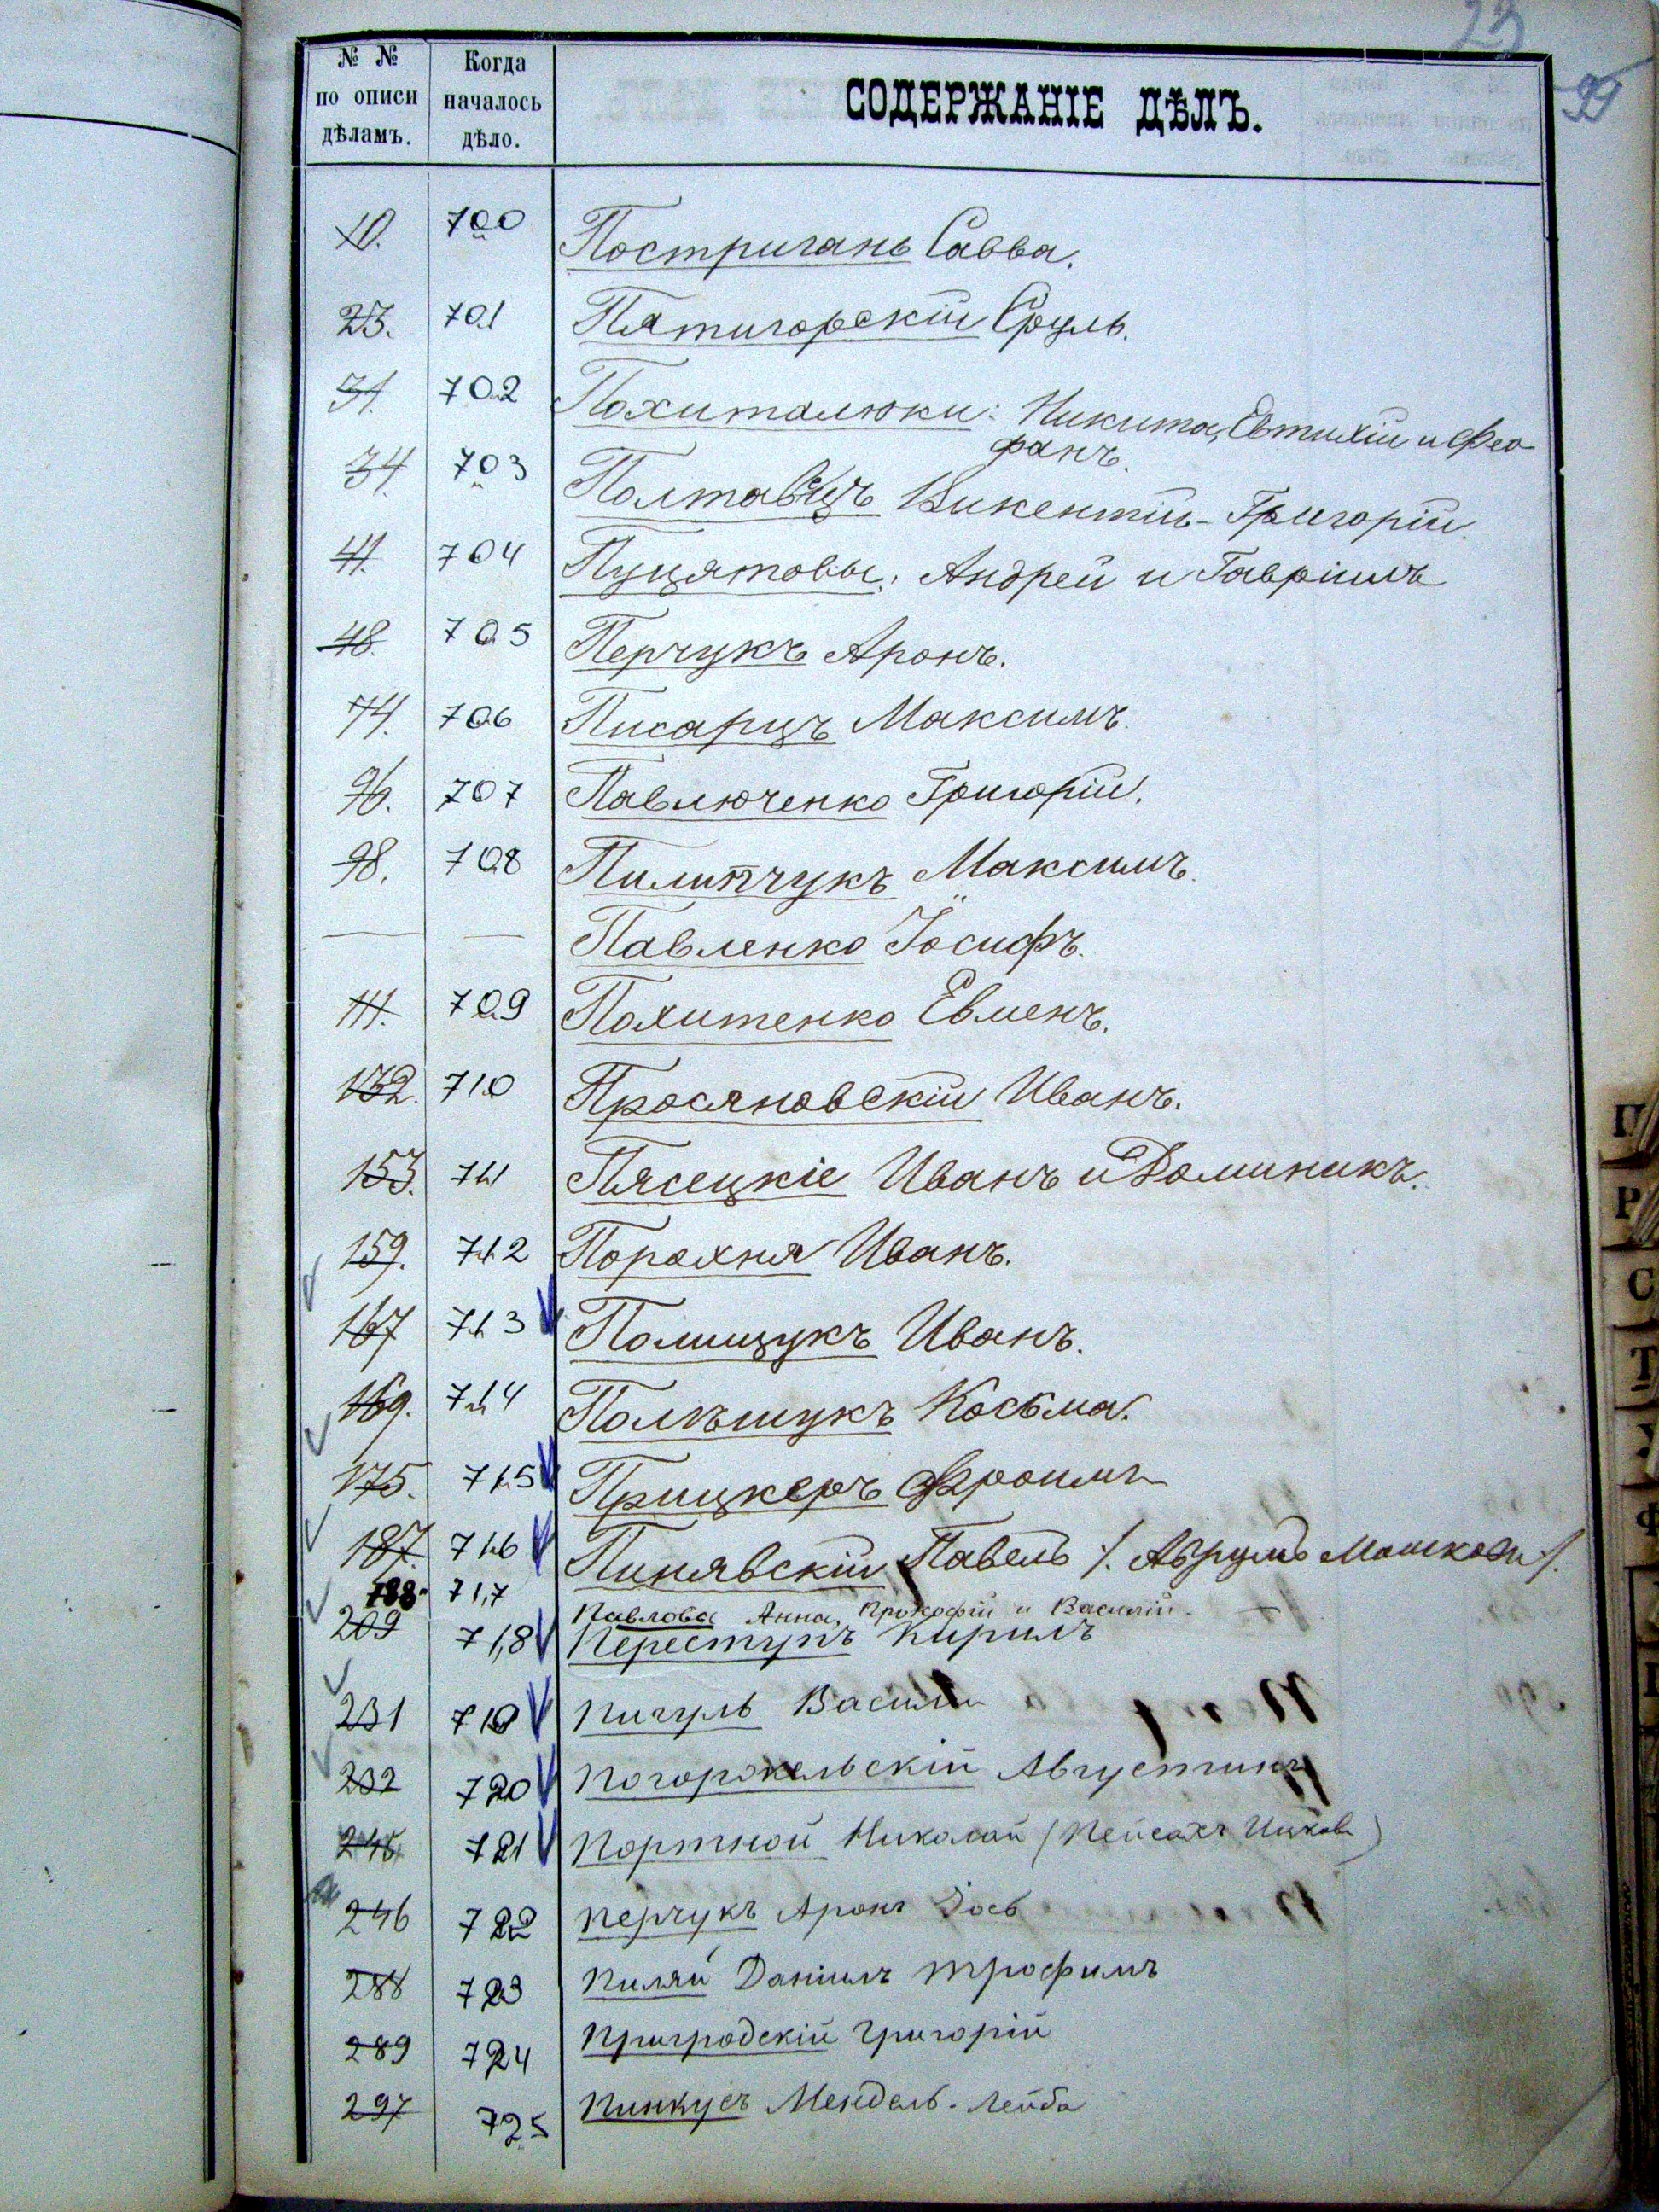 23
99
№ № по описи дѣламъ. Когда началось дѣло. СОДЕРЖАНІЕ ДѢЛЪ.
10. 700 Постриганъ Савва.
23. 701 Пятигорскій Сруль.
31. 702 Похиталюки: Никита, Евтихій и Фео
фанъ.
34. 703 Полтавецъ Викентій-Григорій.
41. 704 Пуцятовы: Андрей и Гавріилъ
48. 705 Перчукъ Аронъ.
74. 706 Писарцъ Максимъ.
96. 707 Павлюченко Григорій.
98. 708 Пилипчукъ Максимъ.
— — Павленко Іосифъ.
111. 709 Похитенко Евменъ.
132. 710 Просяновскій Иванъ.
153. 711 Пясецкіе Иванъ и Доминикъ.
159. 712 Порохня Иванъ.
167 713 Полищукъ Иванъ.
169. 714 Полѣщукъ Косьма.
175. 715 Прицкеръ Фроимъ
187. 716 Пинявскій Павелъ /. Аврумъ Мошковъ /.
188. 717 Павлова Анна, Прокофій и Василій.
209 718 Переступъ Кирилъ
231 719 Пигуль Василій
232 720 Погоржельскій Августинъ
245 721 Портной Николай (Пейсахъ Ицковъ)
246 722 Перчукъ Аронъ Іось
288 723 Пиляй Даніилъ Трофимъ
289 724 Пригродскій Григорій
297 725 Пинкусъ Мендель-Лейба
П
Р
С
Т
Ф